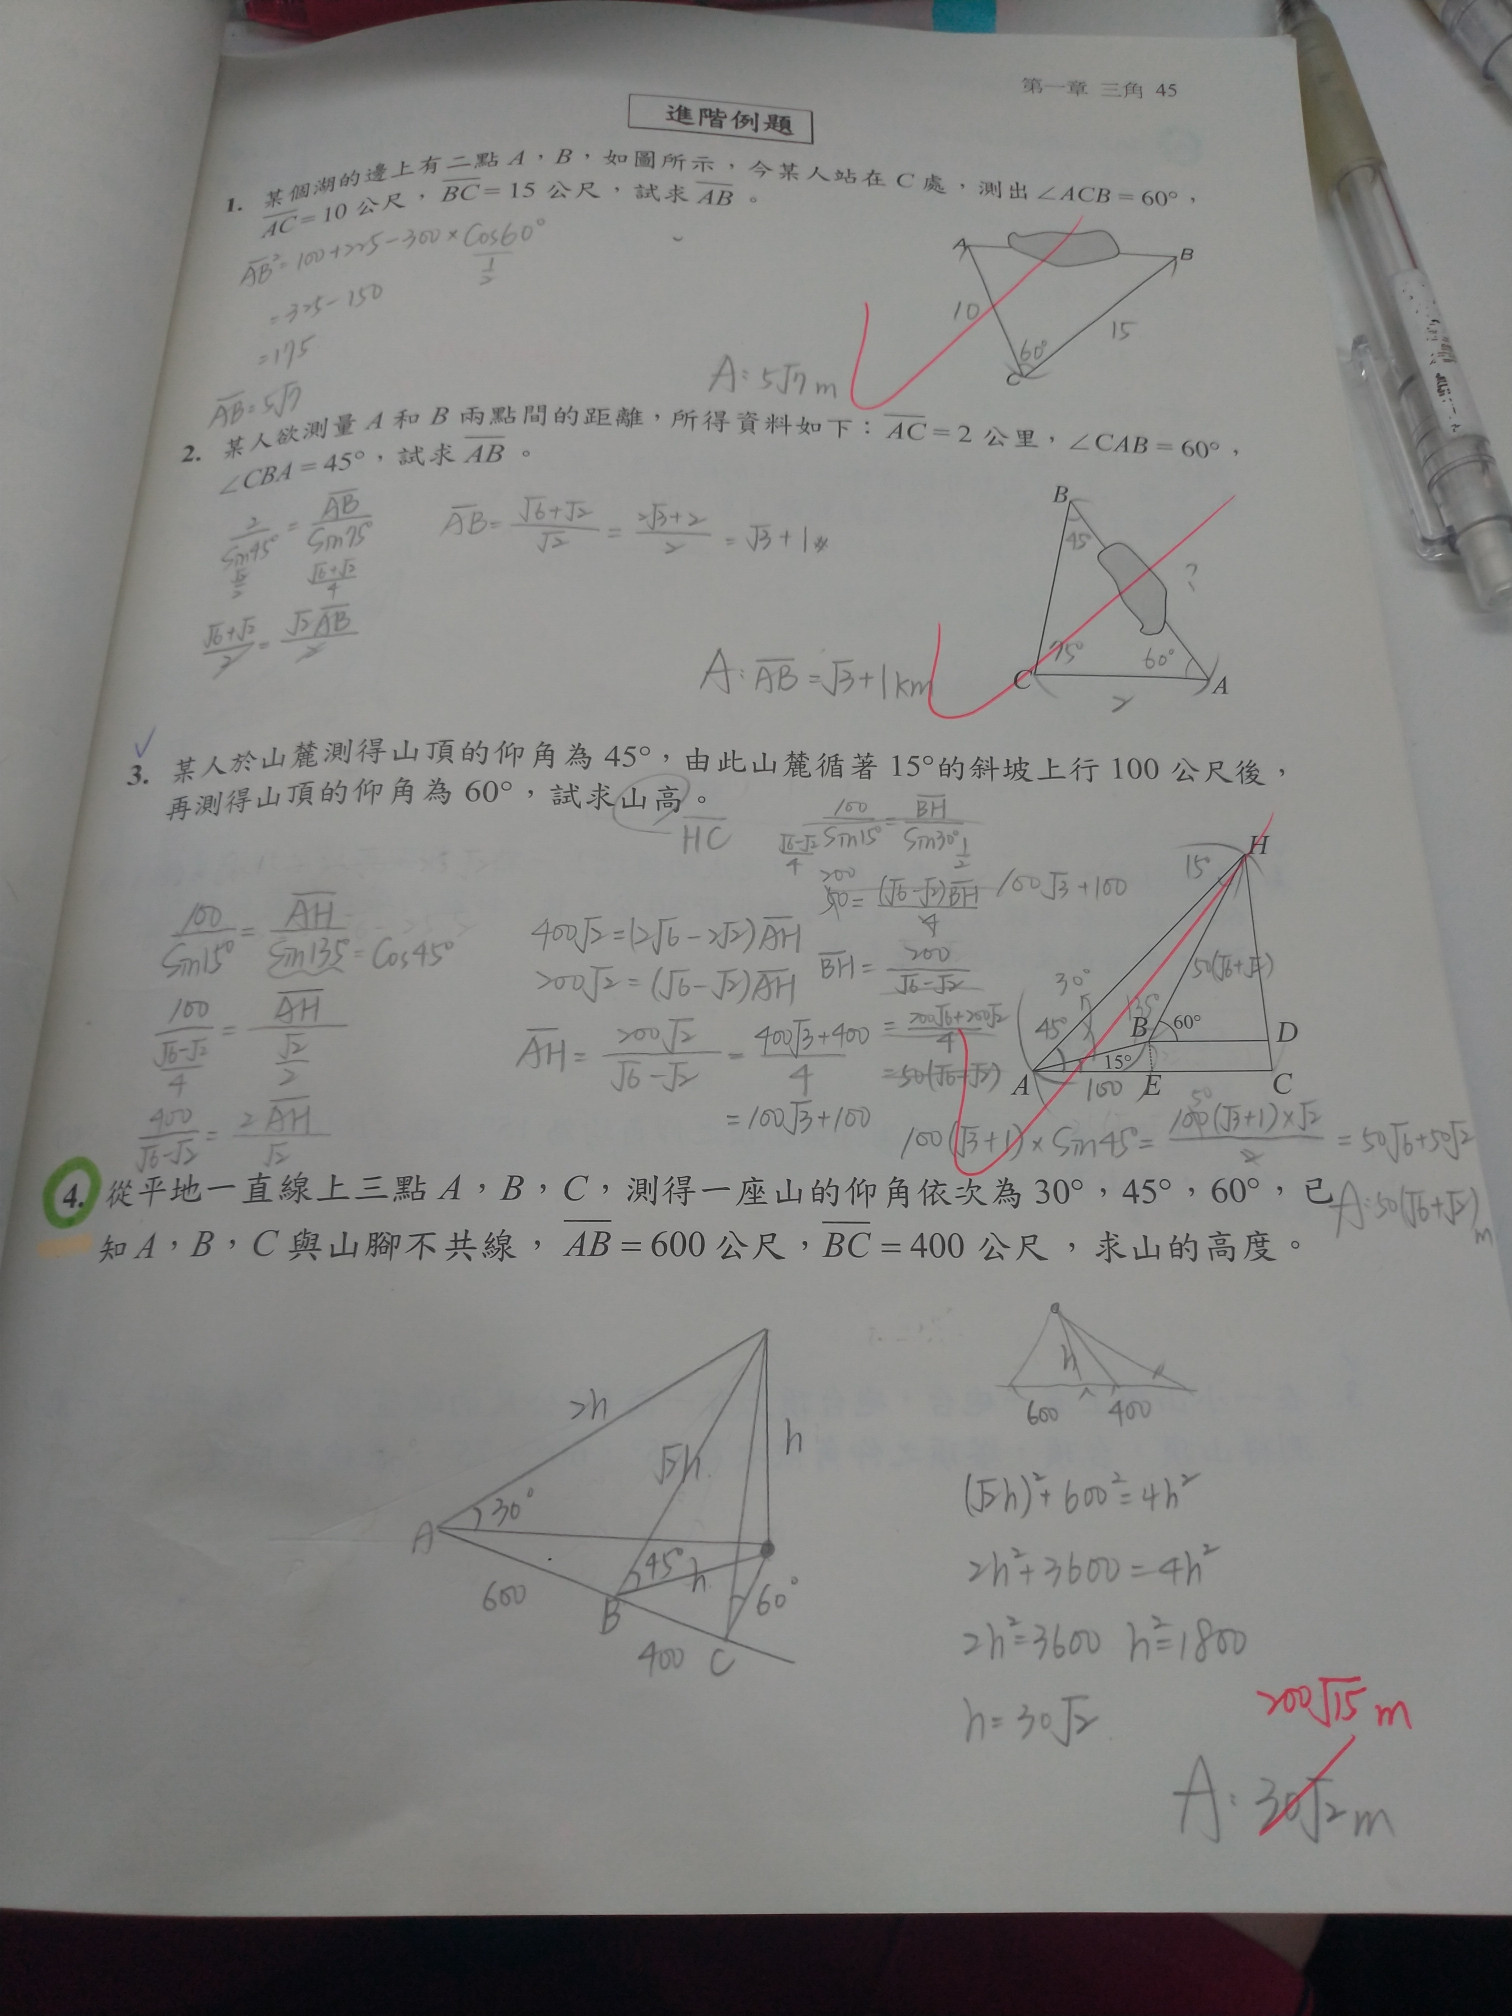 第一章 三角 45
進階例題
1. 某個湖的邊上有二點 A,B,如圖所示,今某人站在 C 處,測出∠ACB=60°,
AC=10 公尺,BC=15 公尺,試求 AB。
AB²=100+225-300×cos60°
1/2
=325-150
=175
AB=5√7
A
B
10
15
60°
C
A:5√7m
2. 某人欲測量 A 和 B 兩點間的距離,所得資料如下:AC=2 公里,∠CAB=60°,
∠CBA=45°,試求 AB。
2/Sin45° = AB/Sin75°
√2/2 (√6+√2)/4
(√6+√2)/2 = √2AB/2
AB=(√6+√2)/√2=(2√3+2)/2=√3+1
B
45
?
75°
60°
C
A
2
A:AB=√3+1km
3. 某人於山麓測得山頂的仰角為 45°,由此山麓循著 15°的斜坡上行 100 公尺後,
再測得山頂的仰角為 60°,試求山高。
HC
100/Sin15°=BH/Sin30°
(√6-√2)/4 1/2
200
50=(√6-√2)BH/4
100√3+100
BH=200/(√6-√2)
=(200√6+200√2)/4
=50(√6+√2)
100/Sin15°=AH/Sin135°=Cos45°
100/((√6-√2)/4)=AH/(√2/2)
400/(√6-√2)=2AH/√2
400√2=(2√6-2√2)AH
200√2=(√6-√2)AH
AH=200√2/(√6-√2)=(400√3+400)/4
=100√3+100
H
15°
50(√6+√2)
30°
45°
135°
B
60°
D
15°
A
100
E
C
100(√3+1)×Sin45°=100(√3+1)×√2/2=50√6+50√2
50
A:50(√6+√2)m
4. 從平地一直線上三點 A,B,C,測得一座山的仰角依次為 30°,45°,60°,已
知 A,B,C 與山腳不共線,AB=600 公尺,BC=400 公尺,求山的高度。
2h
√2h
h
30°
A
45°
h
60°
600
B
400
C
h
600
400
(√2h)²+600²=4h²
2h²+3600=4h²
2h²=3600 h²=1800
h=30√2
200√15 m
A:30√2m